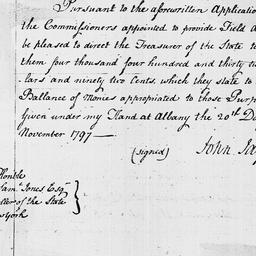 Pursuant to the aforewritten Application
the Commissioners appointed to provide Field A
be pleased to direct the Treasurer of the State t
them four thousand four hundred and thirty t
lars and ninety two Cents, which they state to
Ballance of Monies appropriated to those Purp
Given under my Hand at Albany the 20th D
November 1797 —
(signed) John Ja
Honble
Sam. Jones Esqr
ller of the State
w york